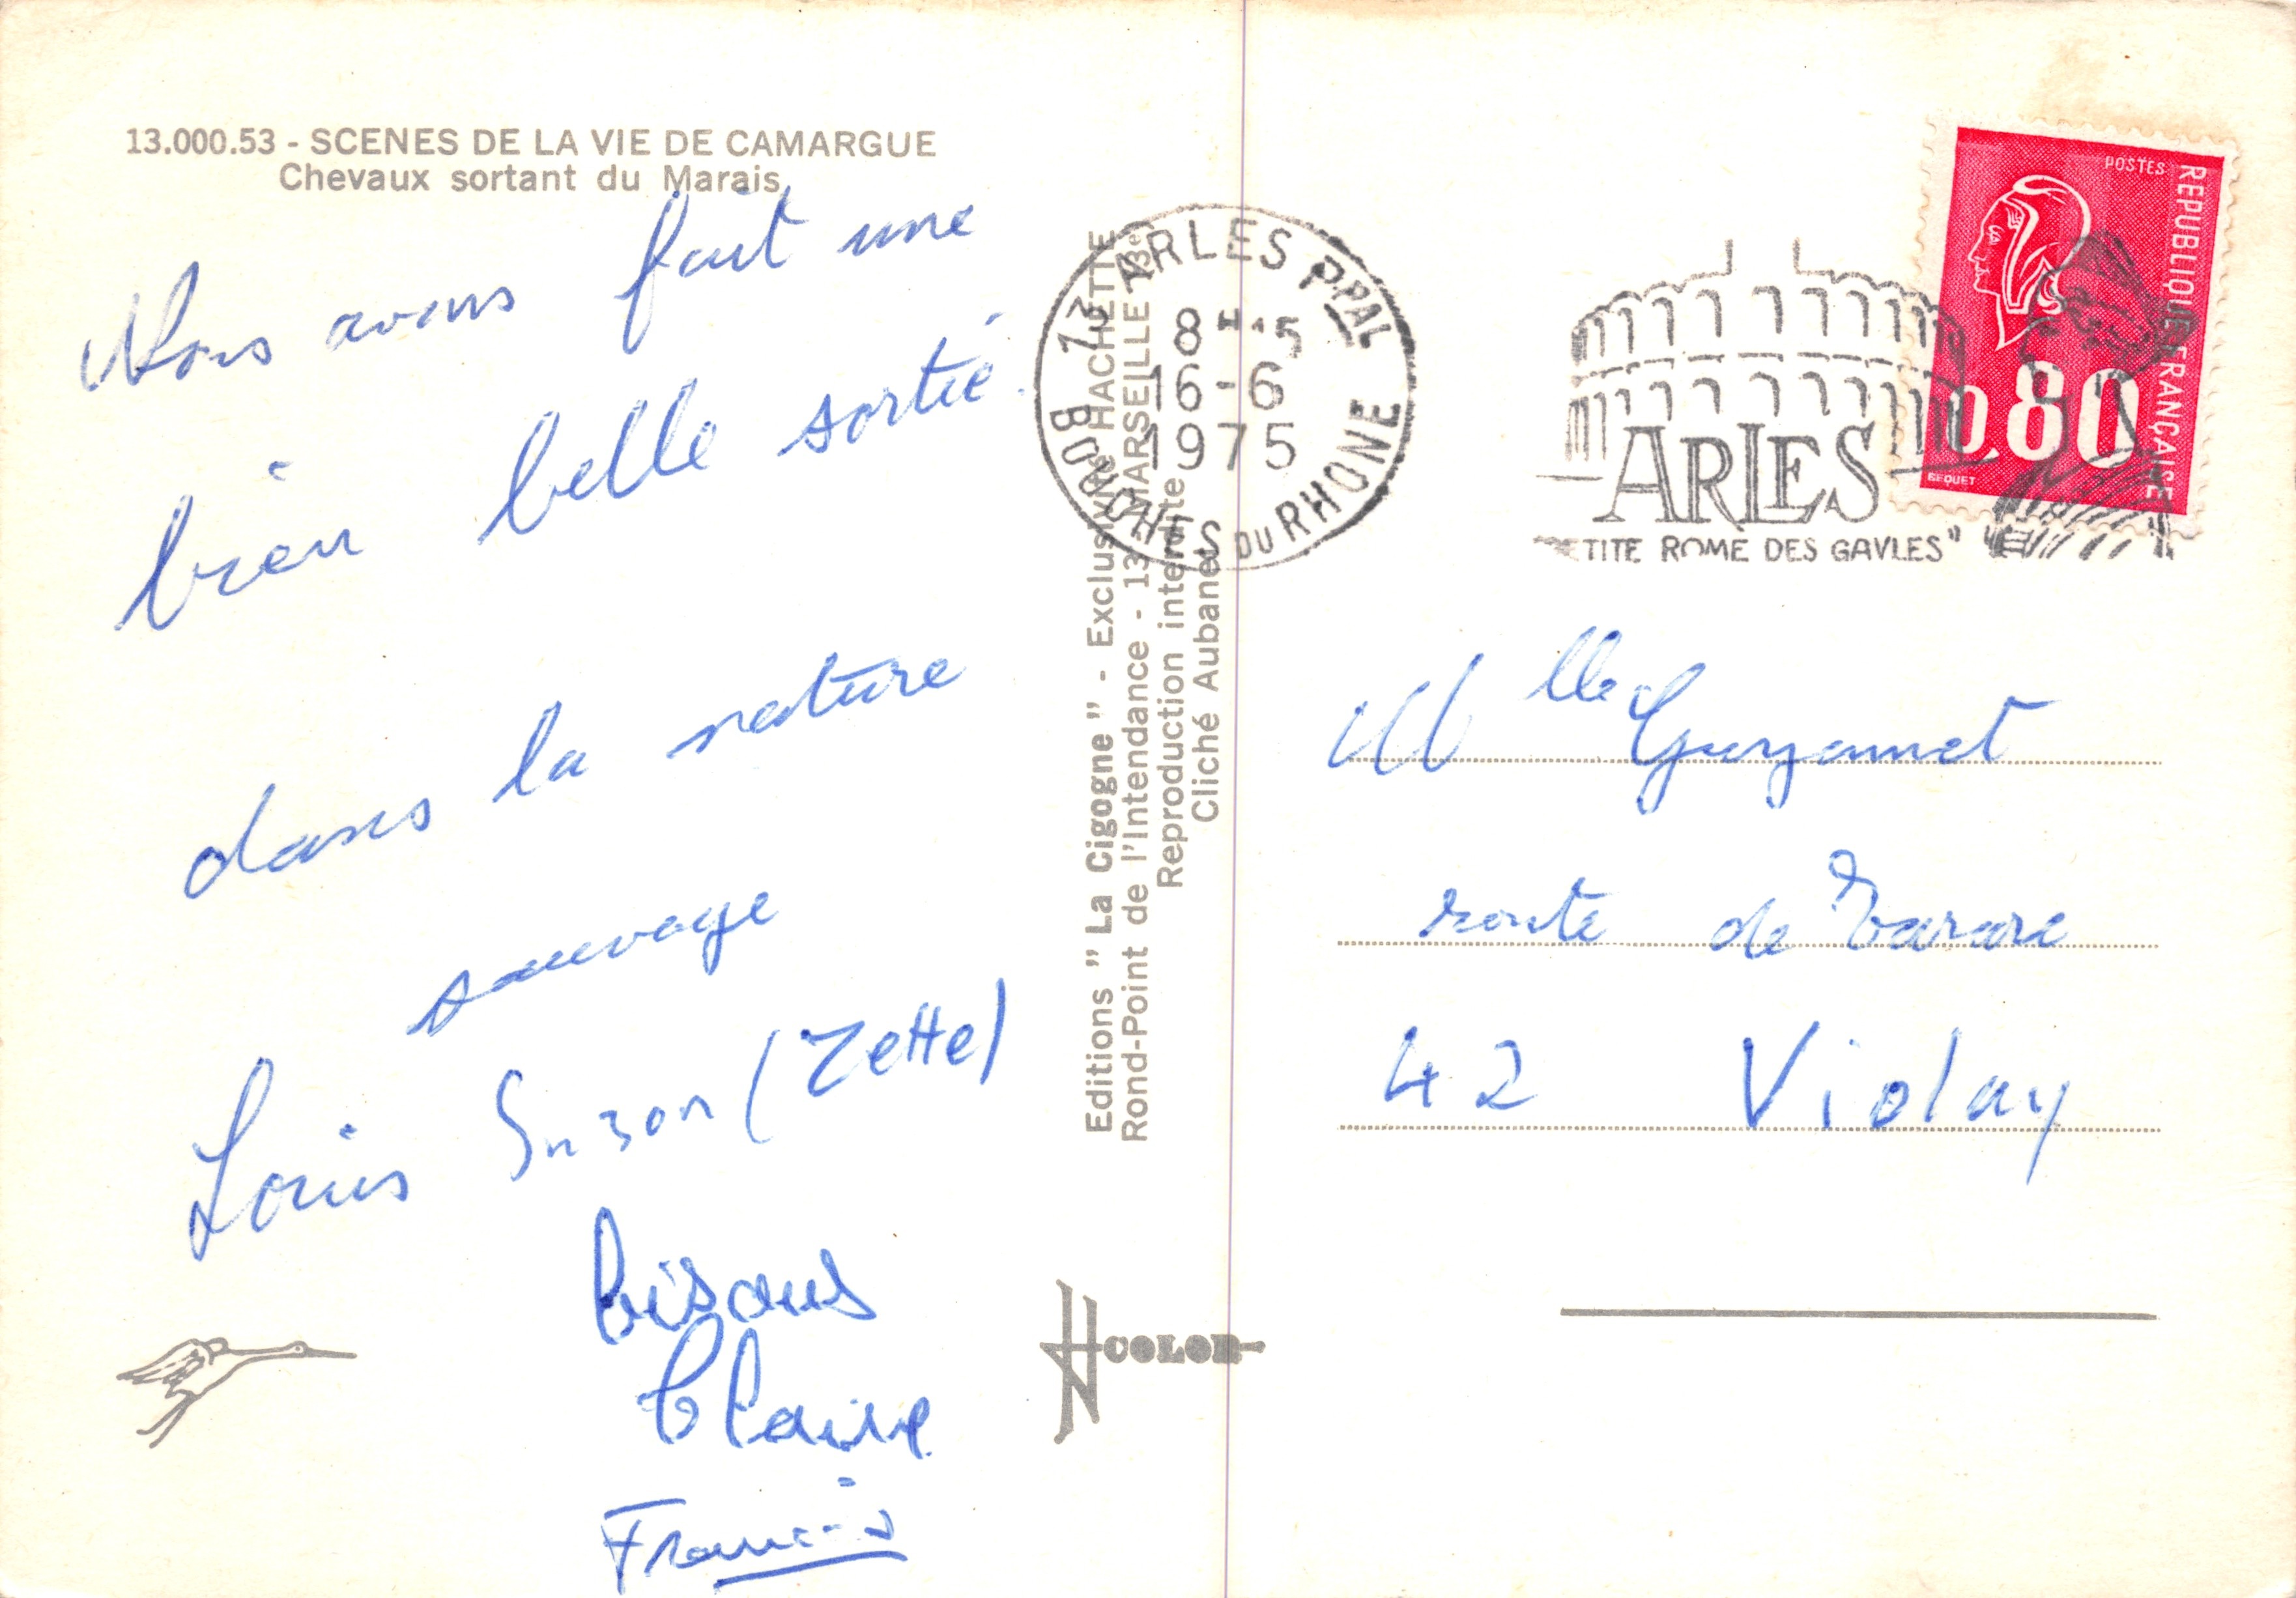 13.000.53 - SCENES DE LA VIE DE CAMARGUE
Chevaux sortant du Marais
Nous avons fait une
bien belle sortie
dans la nature
sauvage
Louis Suzon (Zette)
bisous
Claire
Francis
Editions " La Cigogne " - Exclusivité HACHETTE
Rond-Point de l'Intendance - 13 MARSEILLE 3e
Reproduction interdite
Cliché Aubanel
COLOR
13 ARLES PPAL
8H-5
16-6
1975
BOUCHES DU RHONE
ARLES
TITE ROME DES GAVLES"
POSTES
REPUBLIQUE FRANÇAISE
0.80
BEQUET
Mlle Guyonnet
route de Tarare
42 Violay